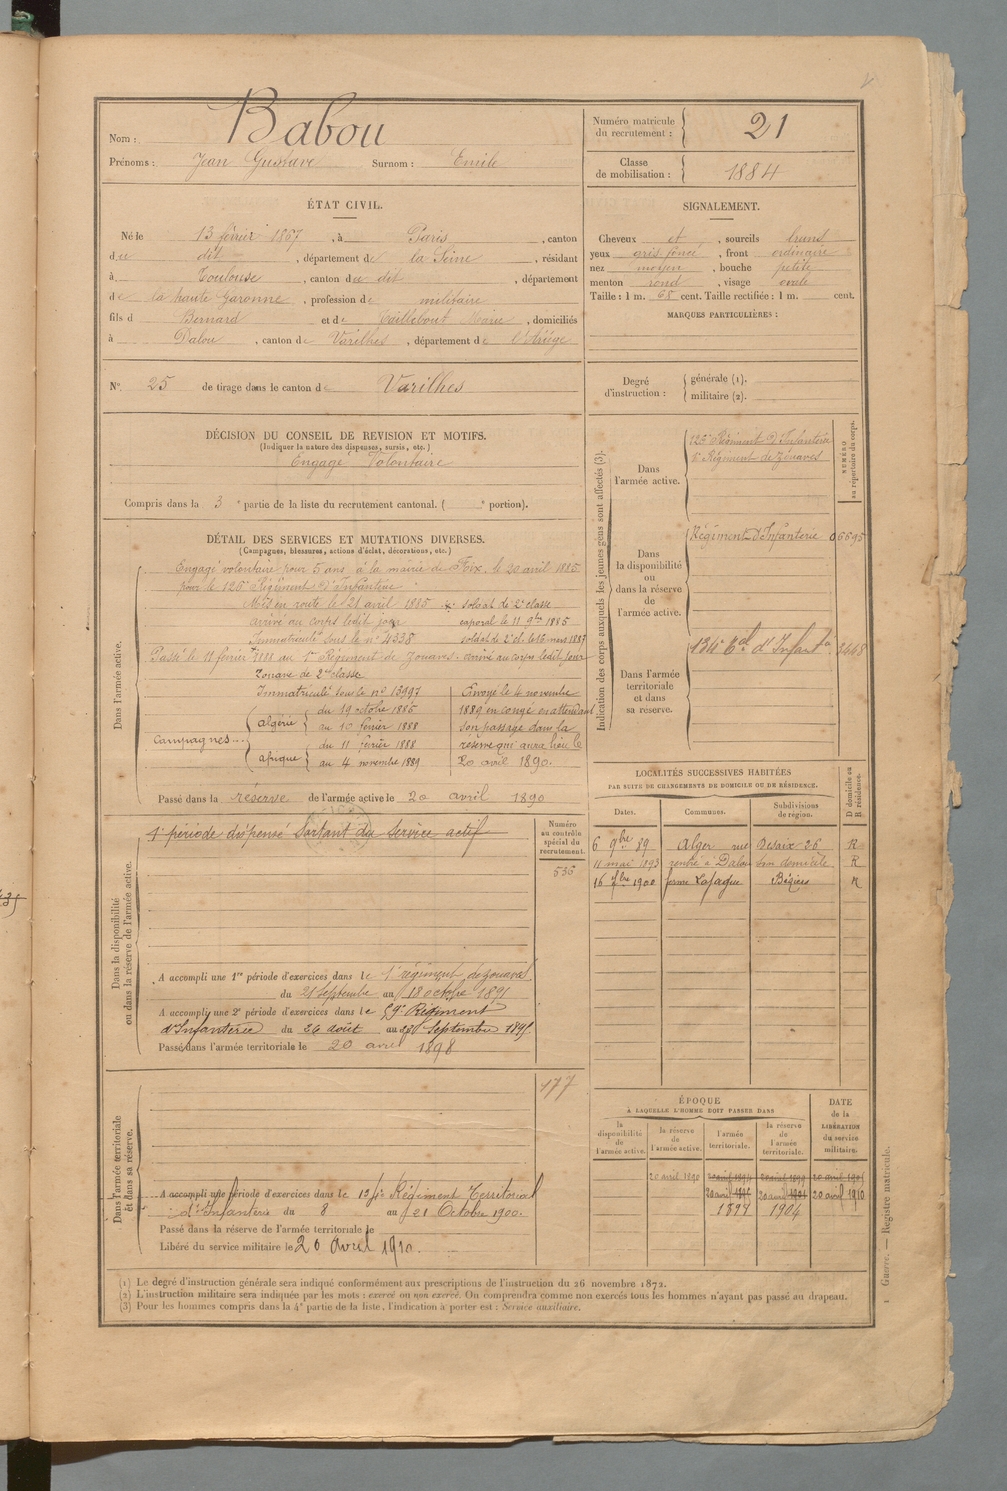 Nom : Babou
Prénoms : Jean Gustave Surnom : Emile
Numéro matricule du recrutement : 21
Classe de mobilisation : 1884
ÉTAT CIVIL.
Né le 13 février 1867, à Paris, canton
du dit, département de la Seine, résidant
à Toulouse, canton du dit, département
de la haute Garonne, profession de militaire
fils d Bernard et de Caillebout Marie, domiciliés
à Dalou, canton de Varilhes, département de l'Ariège
N° 25 de tirage dans le canton de Varilhes
SIGNALEMENT.
Cheveux et, sourcils bruns
yeux gris foncé, front ordinaire
nez moyen, bouche petite
menton rond, visage ovale
Taille : 1 m. 68 cent. Taille rectifiée : 1 m. cent.
MARQUES PARTICULIÈRES :
Degré d'instruction : générale (1).
militaire (2).
DÉCISION DU CONSEIL DE REVISION ET MOTIFS.
(Indiquer la nature des dispenses, sursis, etc.)
Engagé Volontaire
Compris dans la 3e partie de la liste du recrutement cantonal. ( e portion).
DÉTAIL DES SERVICES ET MUTATIONS DIVERSES.
(Campagnes, blessures, actions d'éclat, décorations, etc.)
Dans l'armée active.
Engagé volontaire pour 5 ans à la mairie de Foix, le 20 avril 1885
pour le 126e Régiment d'Infanterie
Mis en route le 21 avril 1885 soldat de 2e classe
arrivé au corps ledit jour caporal le 11 9bre 1885
Immatriculé sous le n° 4338 soldat de 2e cl. le 16 mars 1887
Passé le 11 février 1888 au 1er Régiment de Zouaves - arrivé au corps ledit jour
Zouave de 2e classe
Immatriculé sous le n° 13997 Envoyé le 4 novembre
du 19 octobre 1885 1889 en congé en attendant
algérie au 10 février 1888 son passage dans la
Campagnes du 11 février 1888 réserve qui aura lieu le
afrique au 4 novembre 1889 20 avril 1890.
Passé dans la réserve de l'armée active le 20 avril 1890
Indication des corps auxquels les jeunes gens sont affectés (3).
NUMÉRO au répertoire du corps.
Dans l'armée active.
126e Régiment d'Infanterie
1er Régiment de Zouaves
Dans la disponibilité ou dans la réserve de l'armée active.
Régiment d'Infanterie 06695
Dans l'armée territoriale et dans sa réserve.
134e d'Infanterie 2468
LOCALITÉS SUCCESSIVES HABITÉES
PAR SUITE DE CHANGEMENTS DE DOMICILE OU DE RÉSIDENCE.
D domicile ou R résidence.
Dates. Communes. Subdivisions de région.
6 9bre 89 Alger rue Desaix 26 R
11 mai 1893 rentré à Dalou son domicile R
16 1900 ferme Lafague Béziers R
Dans la disponibilité ou dans la réserve de l'armée active.
Numéro au contrôle spécial du recrutement.
1e période dispensé Sortant du Service actif
536
A accompli une 1re période d'exercices dans le 1er régiment de zouaves
du 21 Septembre au 18 octobre 1891
A accompli une 2e période d'exercices dans le 59e Régiment
d'Infanterie du 26 août au Septembre 1895
Passé dans l'armée territoriale le 20 avril 1898
Dans l'armée territoriale et dans sa réserve.
177
A accompli une période d'exercices dans le 134e Régiment Territorial
d'Infanterie du 8 au 21 Octobre 1900.
Passé dans la réserve de l'armée territoriale le
Libéré du service militaire le 20 Avril 1910.
ÉPOQUE
À LAQUELLE L'HOMME DOIT PASSER DANS
DATE de la LIBÉRATION du service militaire.
la disponibilité de l'armée active. la réserve de l'armée active. l'armée territoriale. la réserve de l'armée territoriale.
20 avril 1890 20 avril 1894 20 avril 1899 20 avril 1905
20 avril 20 avril 20 avril 1910
1897 1904
(1) Le degré d'instruction générale sera indiqué conformément aux prescriptions de l'instruction du 26 novembre 1872.
(2) L'instruction militaire sera indiquée par les mots : exercé ou non exercé. On comprendra comme non exercés tous les hommes n'ayant pas passé au drapeau.
(3) Pour les hommes compris dans la 4e partie de la liste, l'indication à porter est : Service auxiliaire.
Guerre. — Registre matricule.